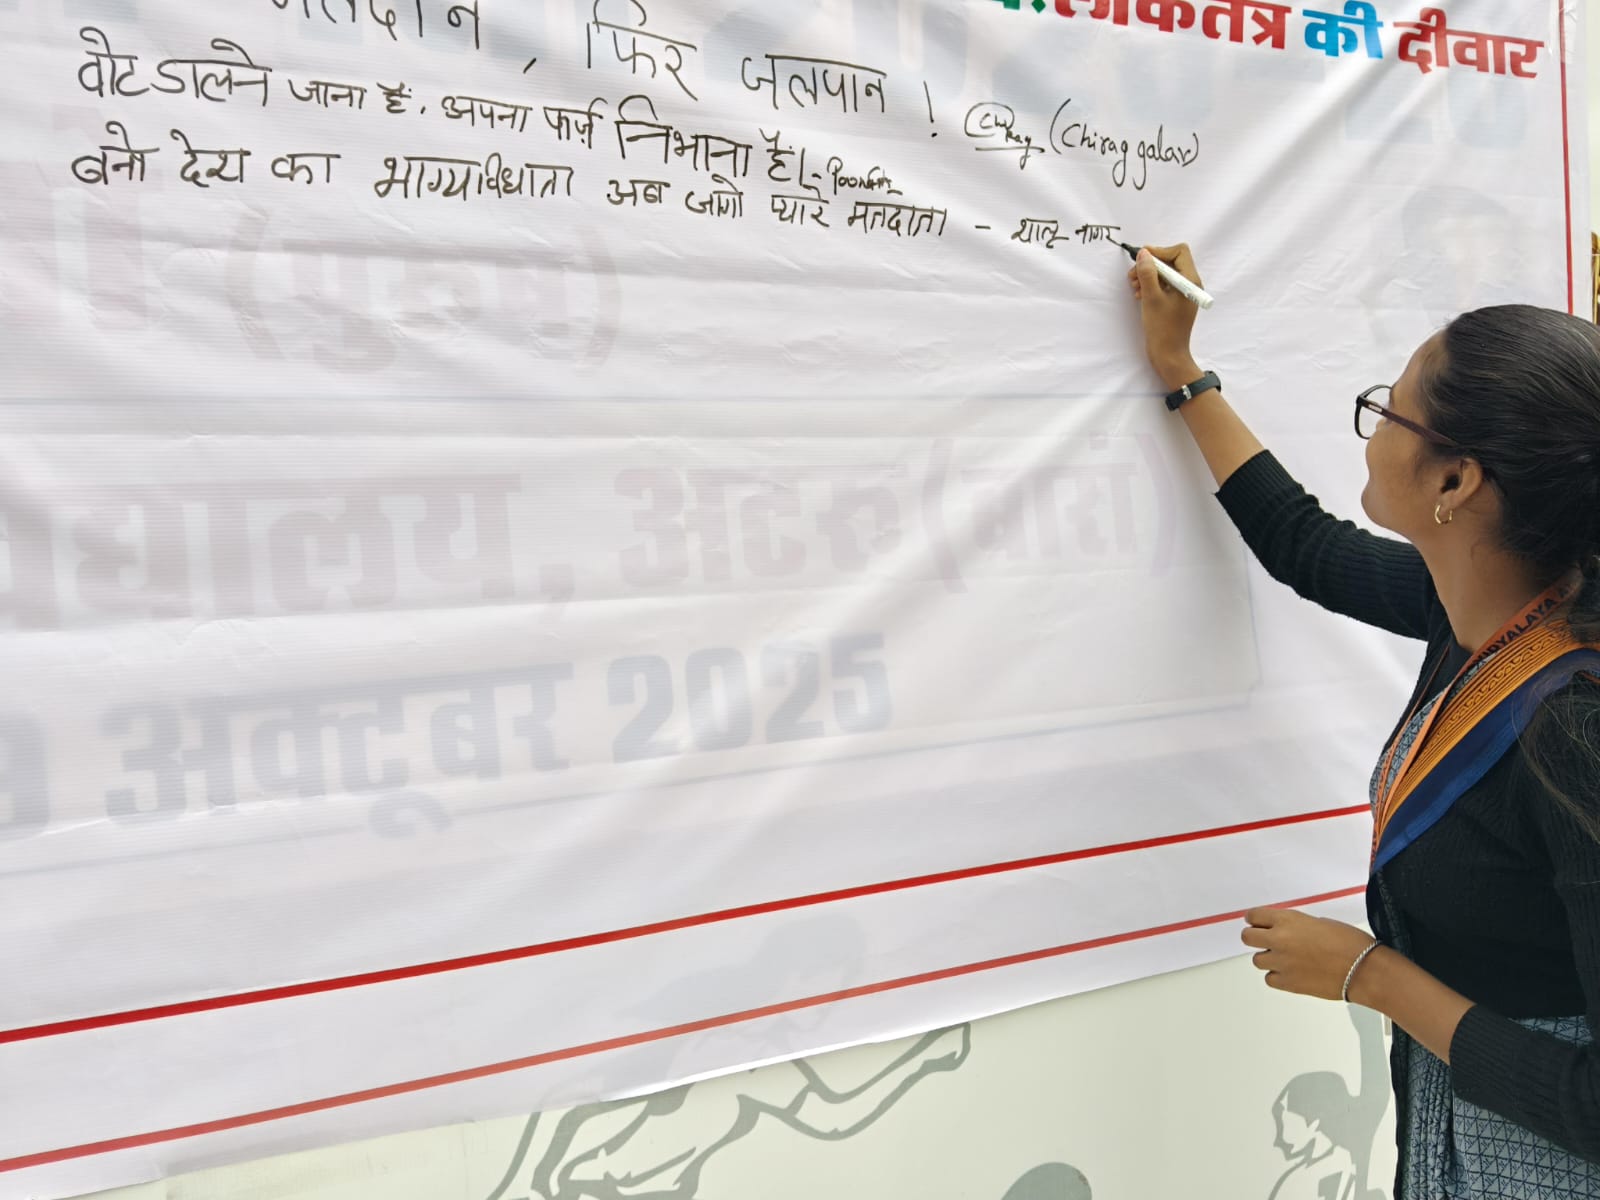 लोकतंत्र की दीवार
मतदान, फिर जलपान! Chirag (Chirag galav)
वोट डालने जाना है. अपना फर्ज़ निभाना है।- Poonam
बनो देश का भाग्यविधाता अब जागो प्यारे मतदाता - शालू नागर
(पुरुष)
द्यालय, अटरू (बारां)
9 अक्टूबर 2025
DYALAYA A